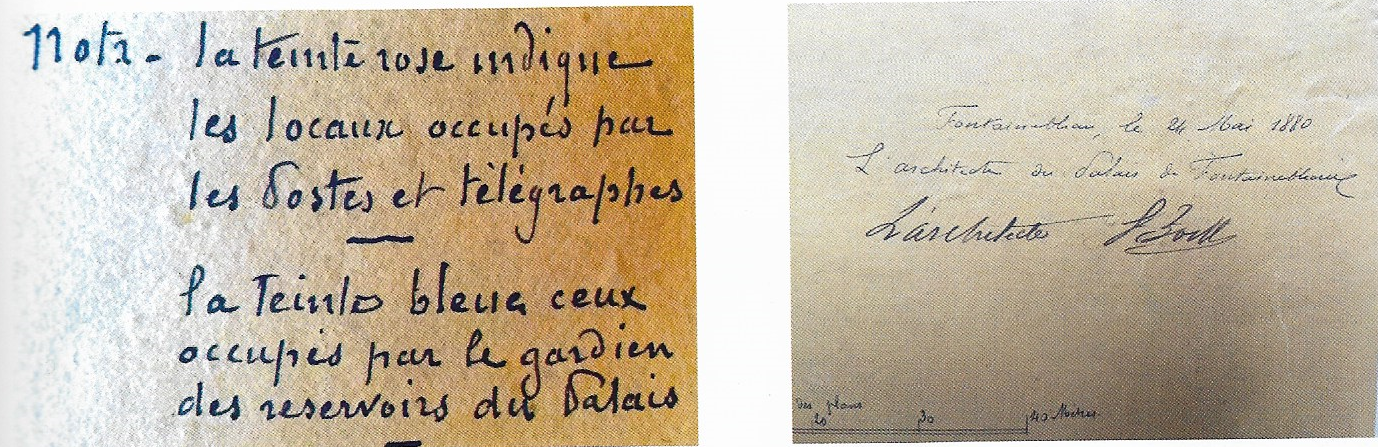 Nota - la teinte rose indique
les locaux occupés par
les Postes et télégraphes
la Teinte bleue ceux
occupés par le gardien
des reservoirs du Palais
Fontainebleau, le 24 Mai 1880
L'architecte du Palais de Fontainebleau
L'architecte
des plans
20 30 40 Mètres